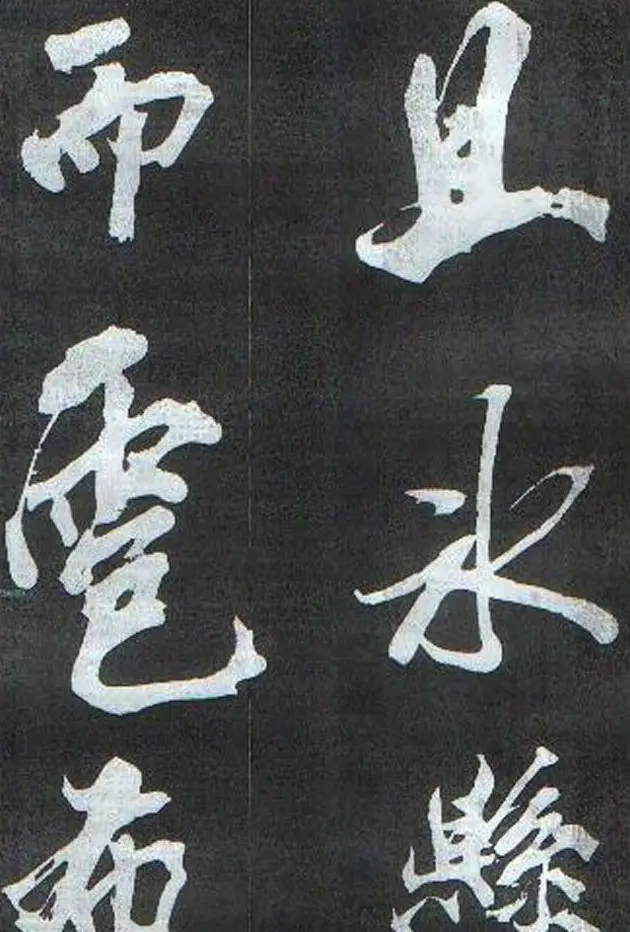 且氷縣
而雹布